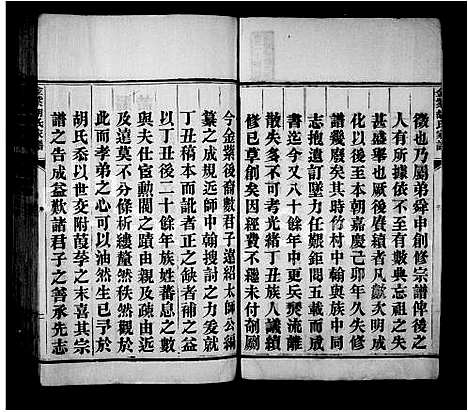 徵也乃屬弟舜申創修宗譜俾後之
人有所據依不至有數典忘祖之失
甚盛舉也厥後賡續者凡歲次明成
化以後至本朝嘉慶己卯年久失修
譜幾廢矣其時竹村中翰與族中同
志抱遺訂墜力任艱鉅閱五載而成
書迄今又八十餘年中更兵燹流離
散失多不可考光緒丁丑族人議續
修已草創矣因經費不繼未付剞劂
今金紫後裔數君子遠紹太師公編
纂之成規近師中翰搜討之力爰就
丁丑稿本而訂正之缺者補之益
以丁丑後二十餘年族姓蕃息之數
與夫仕宦勳閥之蹟由親及疎由近
及遠莫不分條析縷釐然秩然觀於
此而孝弟之心可以油然生已予於
胡氏忝以世交附葭莩之末喜其宗
譜之告成益歎諸君子之善承先志
金紫胡氏家譜